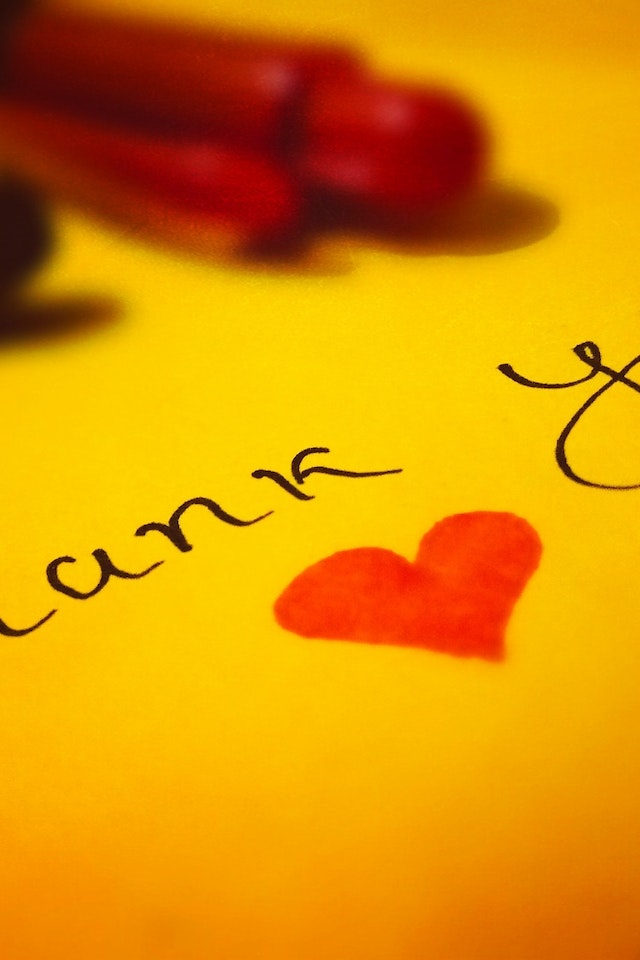 ank y